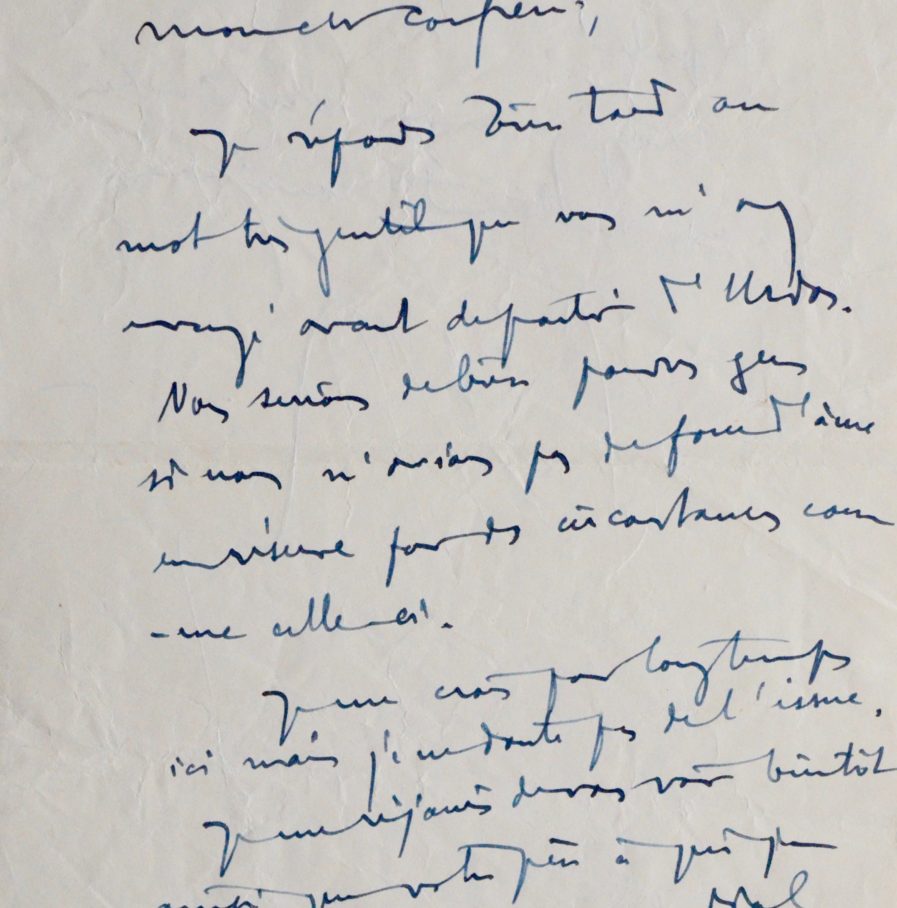 mon cher confrère,
Je réponds bien tard au
mot très gentil que vous m'avez
envoyé avant de partir d'Urdos.
Nous serions de bien pauvres gens
si nous n'avions pas de fond d'âme
en réserve pour des circonstances com
-me celle-ci.
Je me crois pour longtemps
ici mais je ne doute pas de l'issue.
Je me réjouis de vous voir bientôt
ainsi que votre père à qui je